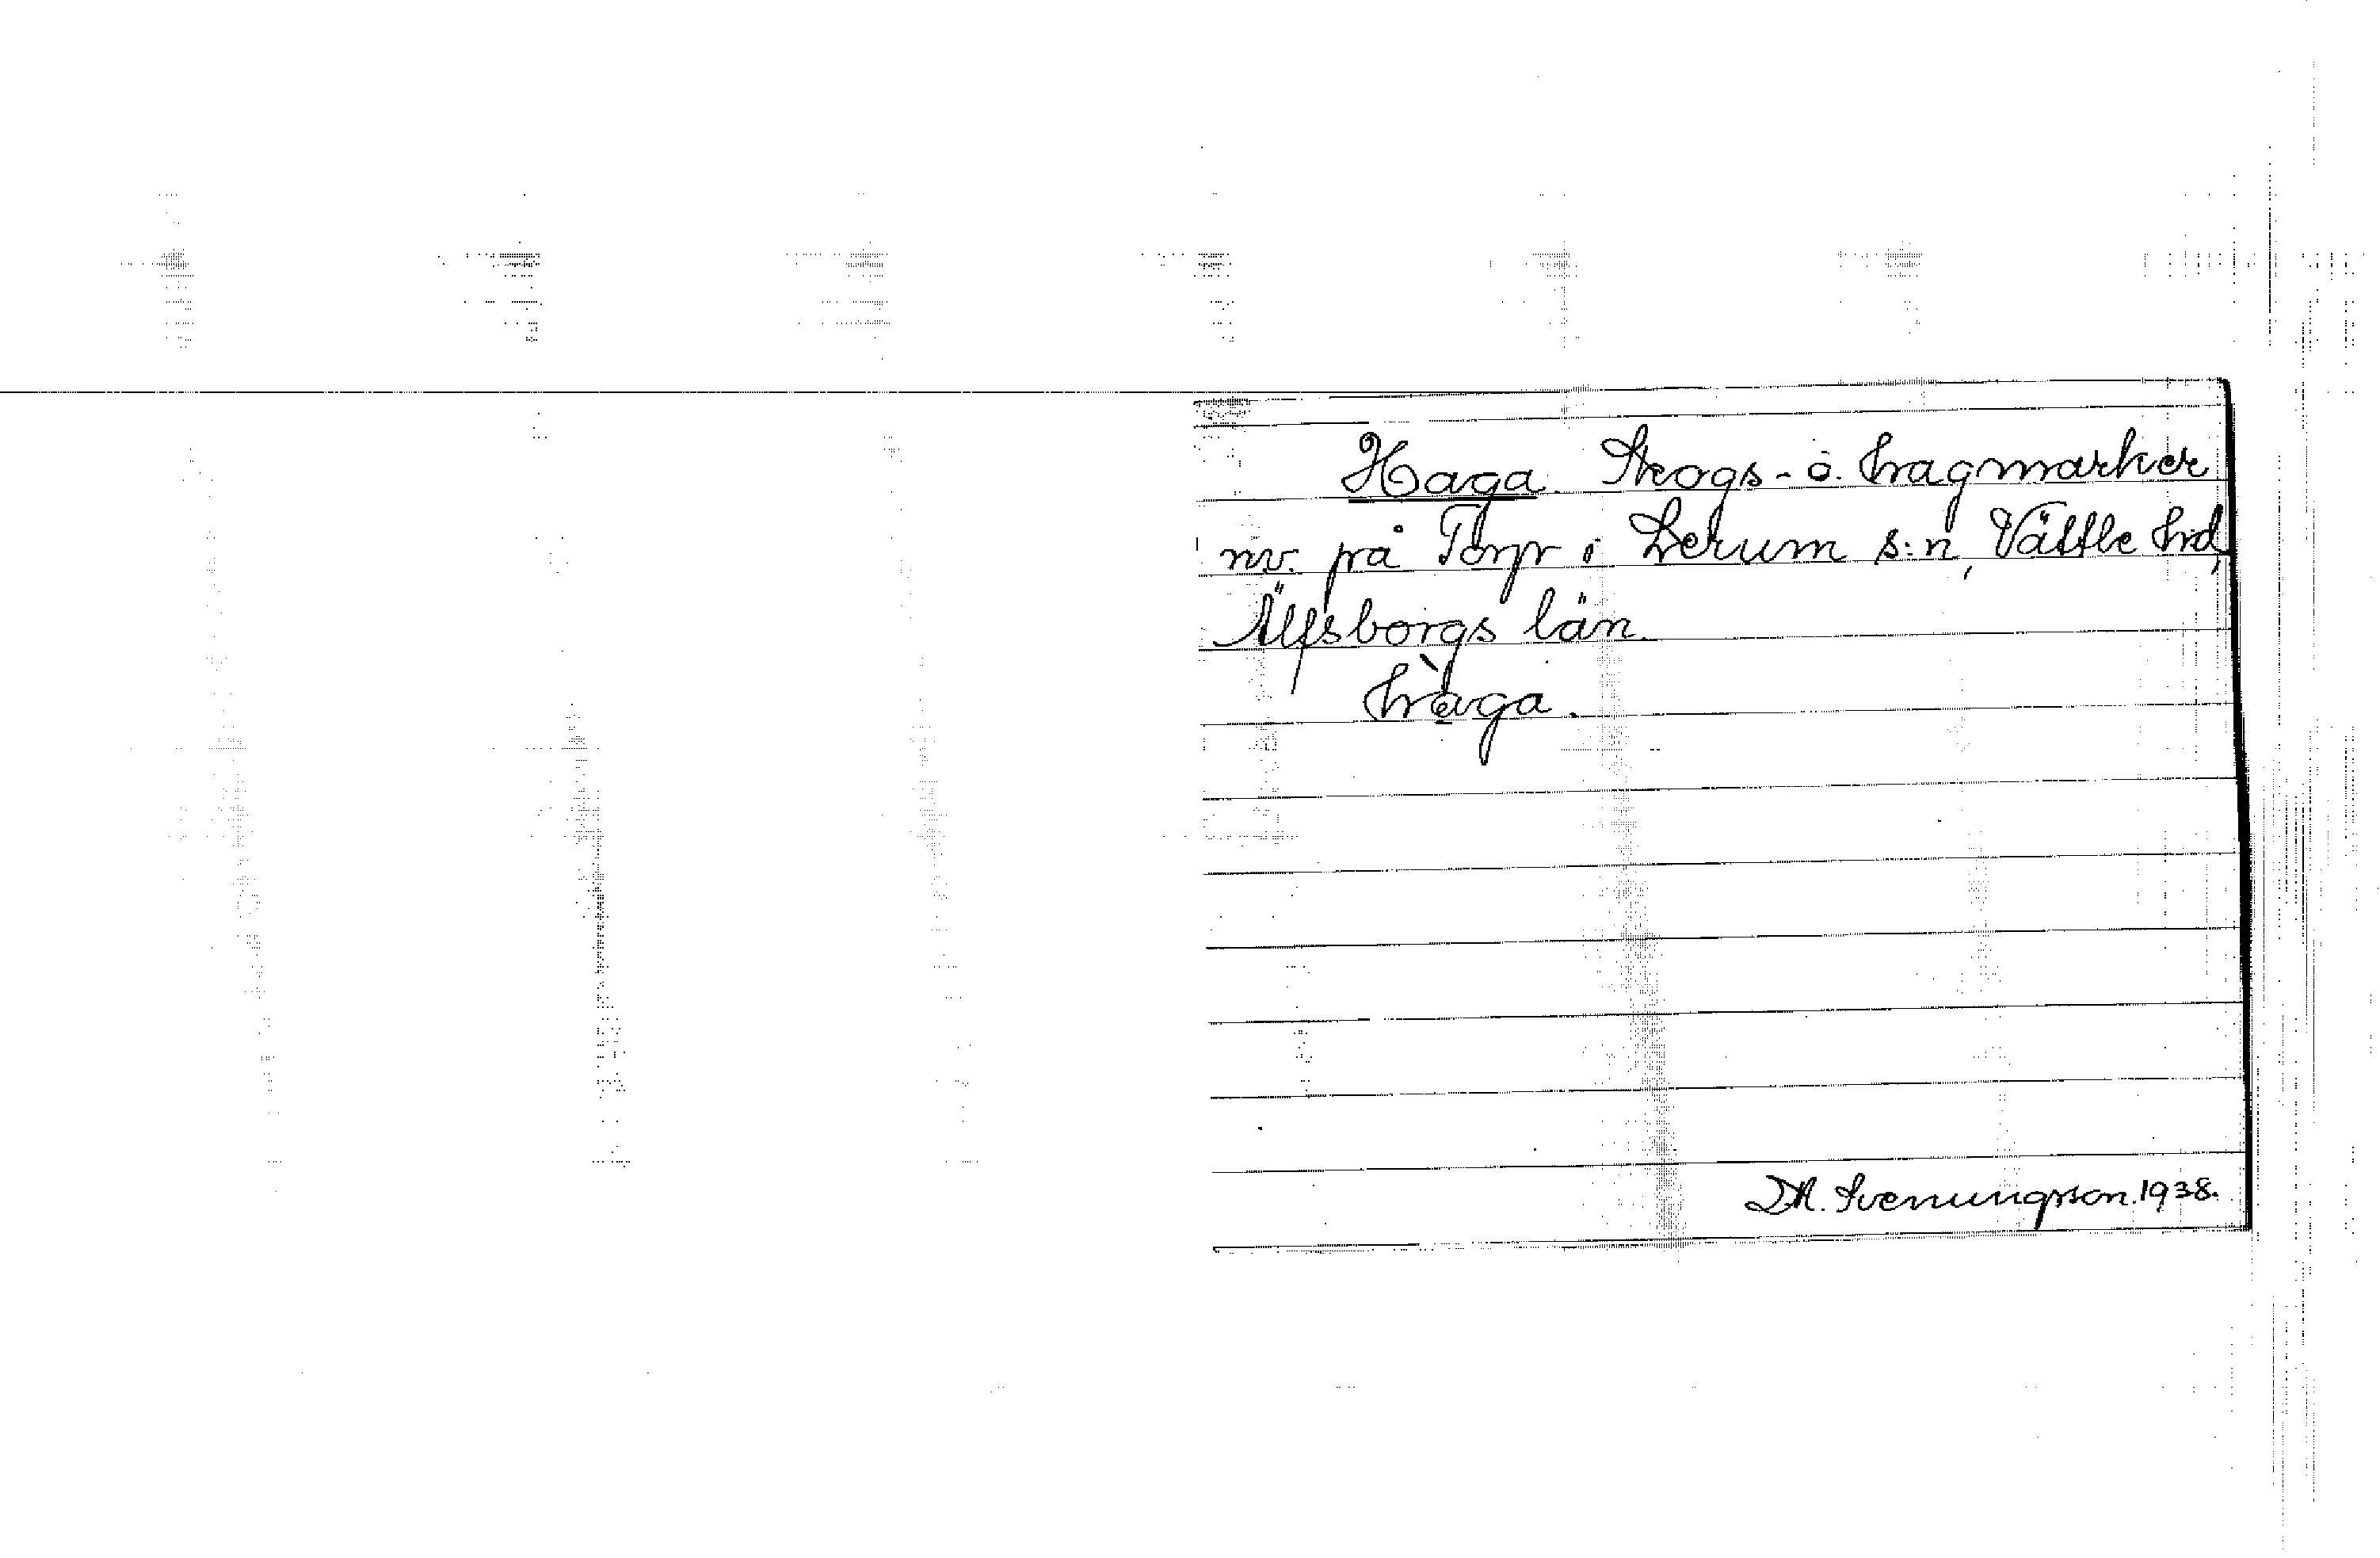 Haga. Skogs- o. hagmarker
nv. på Torp i Lerum s:n, Vättle hd,
Älfsborgs län.
hàga.
D.A. Svenungsson. 1938.